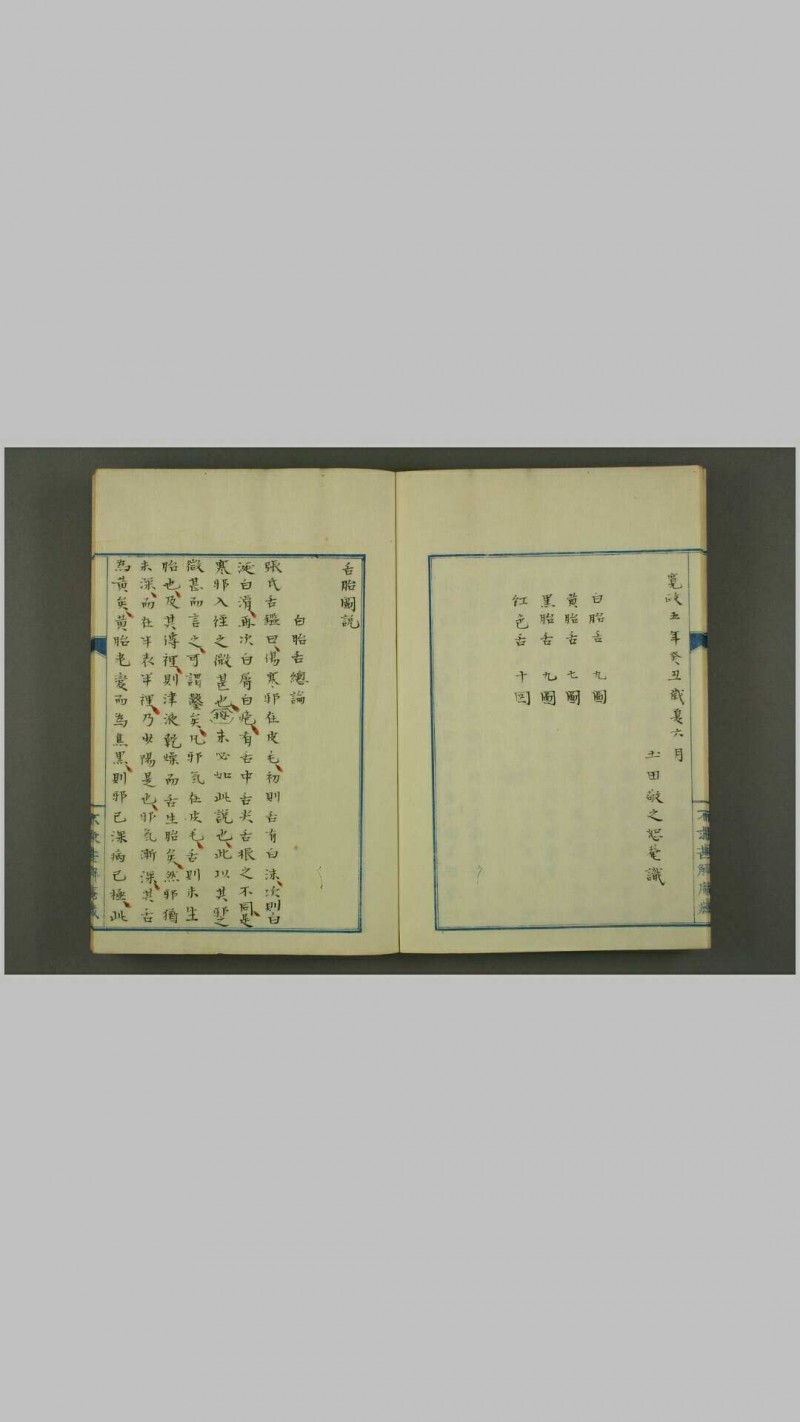 寛政五年癸丑歳夏六月
土田敬之恕菴識
白胎舌 九圖
黄胎舌 七圖
黒胎舌 九圖
紅色舌 十図
舌胎圖説
白胎舌總論
張氏舌鑑曰傷寒邪在皮毛初則舌有白沫次則白
涎白滑再次白屑白疱有舌中舌尖舌根之不同是
寒邪入裡之微甚也 未必如此説也此以其邪之
微甚而言之可謂鑿矣凡邪氣在皮毛舌則未生
胎也及其傳裡則津液乾燥而舌生胎矣然邪猶
未深而在半表半裡乃少陽是也邪氣漸深其舌
為黄矣黄胎老變而為焦黒則邪已深病已極此